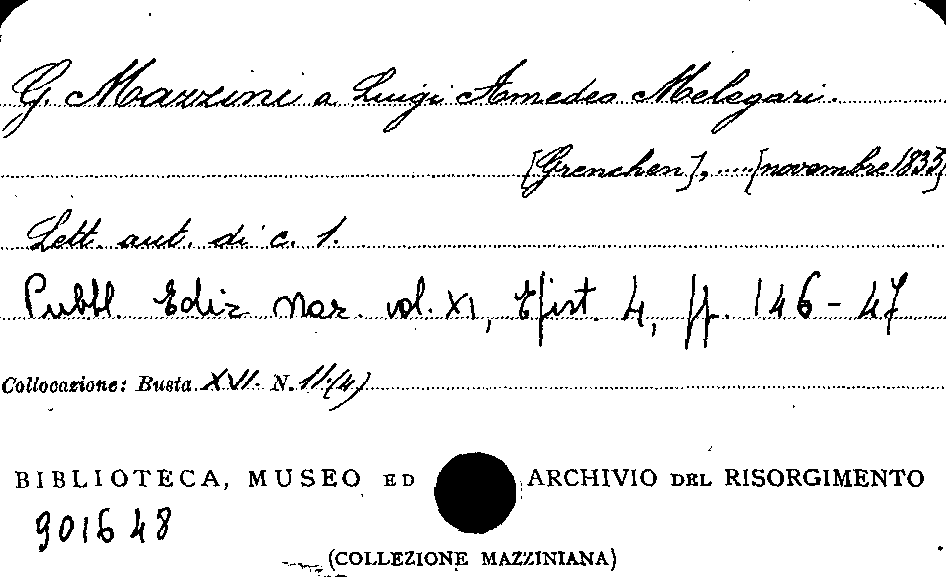 G. Mazzini a Luigi Amedeo Melegari.
[Grenchen], ..... [novembre 1833]
Lett. aut. di c. 1.
Pubbl. Ediz Naz. vol. XI, Epist. 4, pp. 146-47
Collocazione: Busta XVI. N. 11.(4)
BIBLIOTECA, MUSEO ED ARCHIVIO DEL RISORGIMENTO
901648
(COLLEZIONE MAZZINIANA)